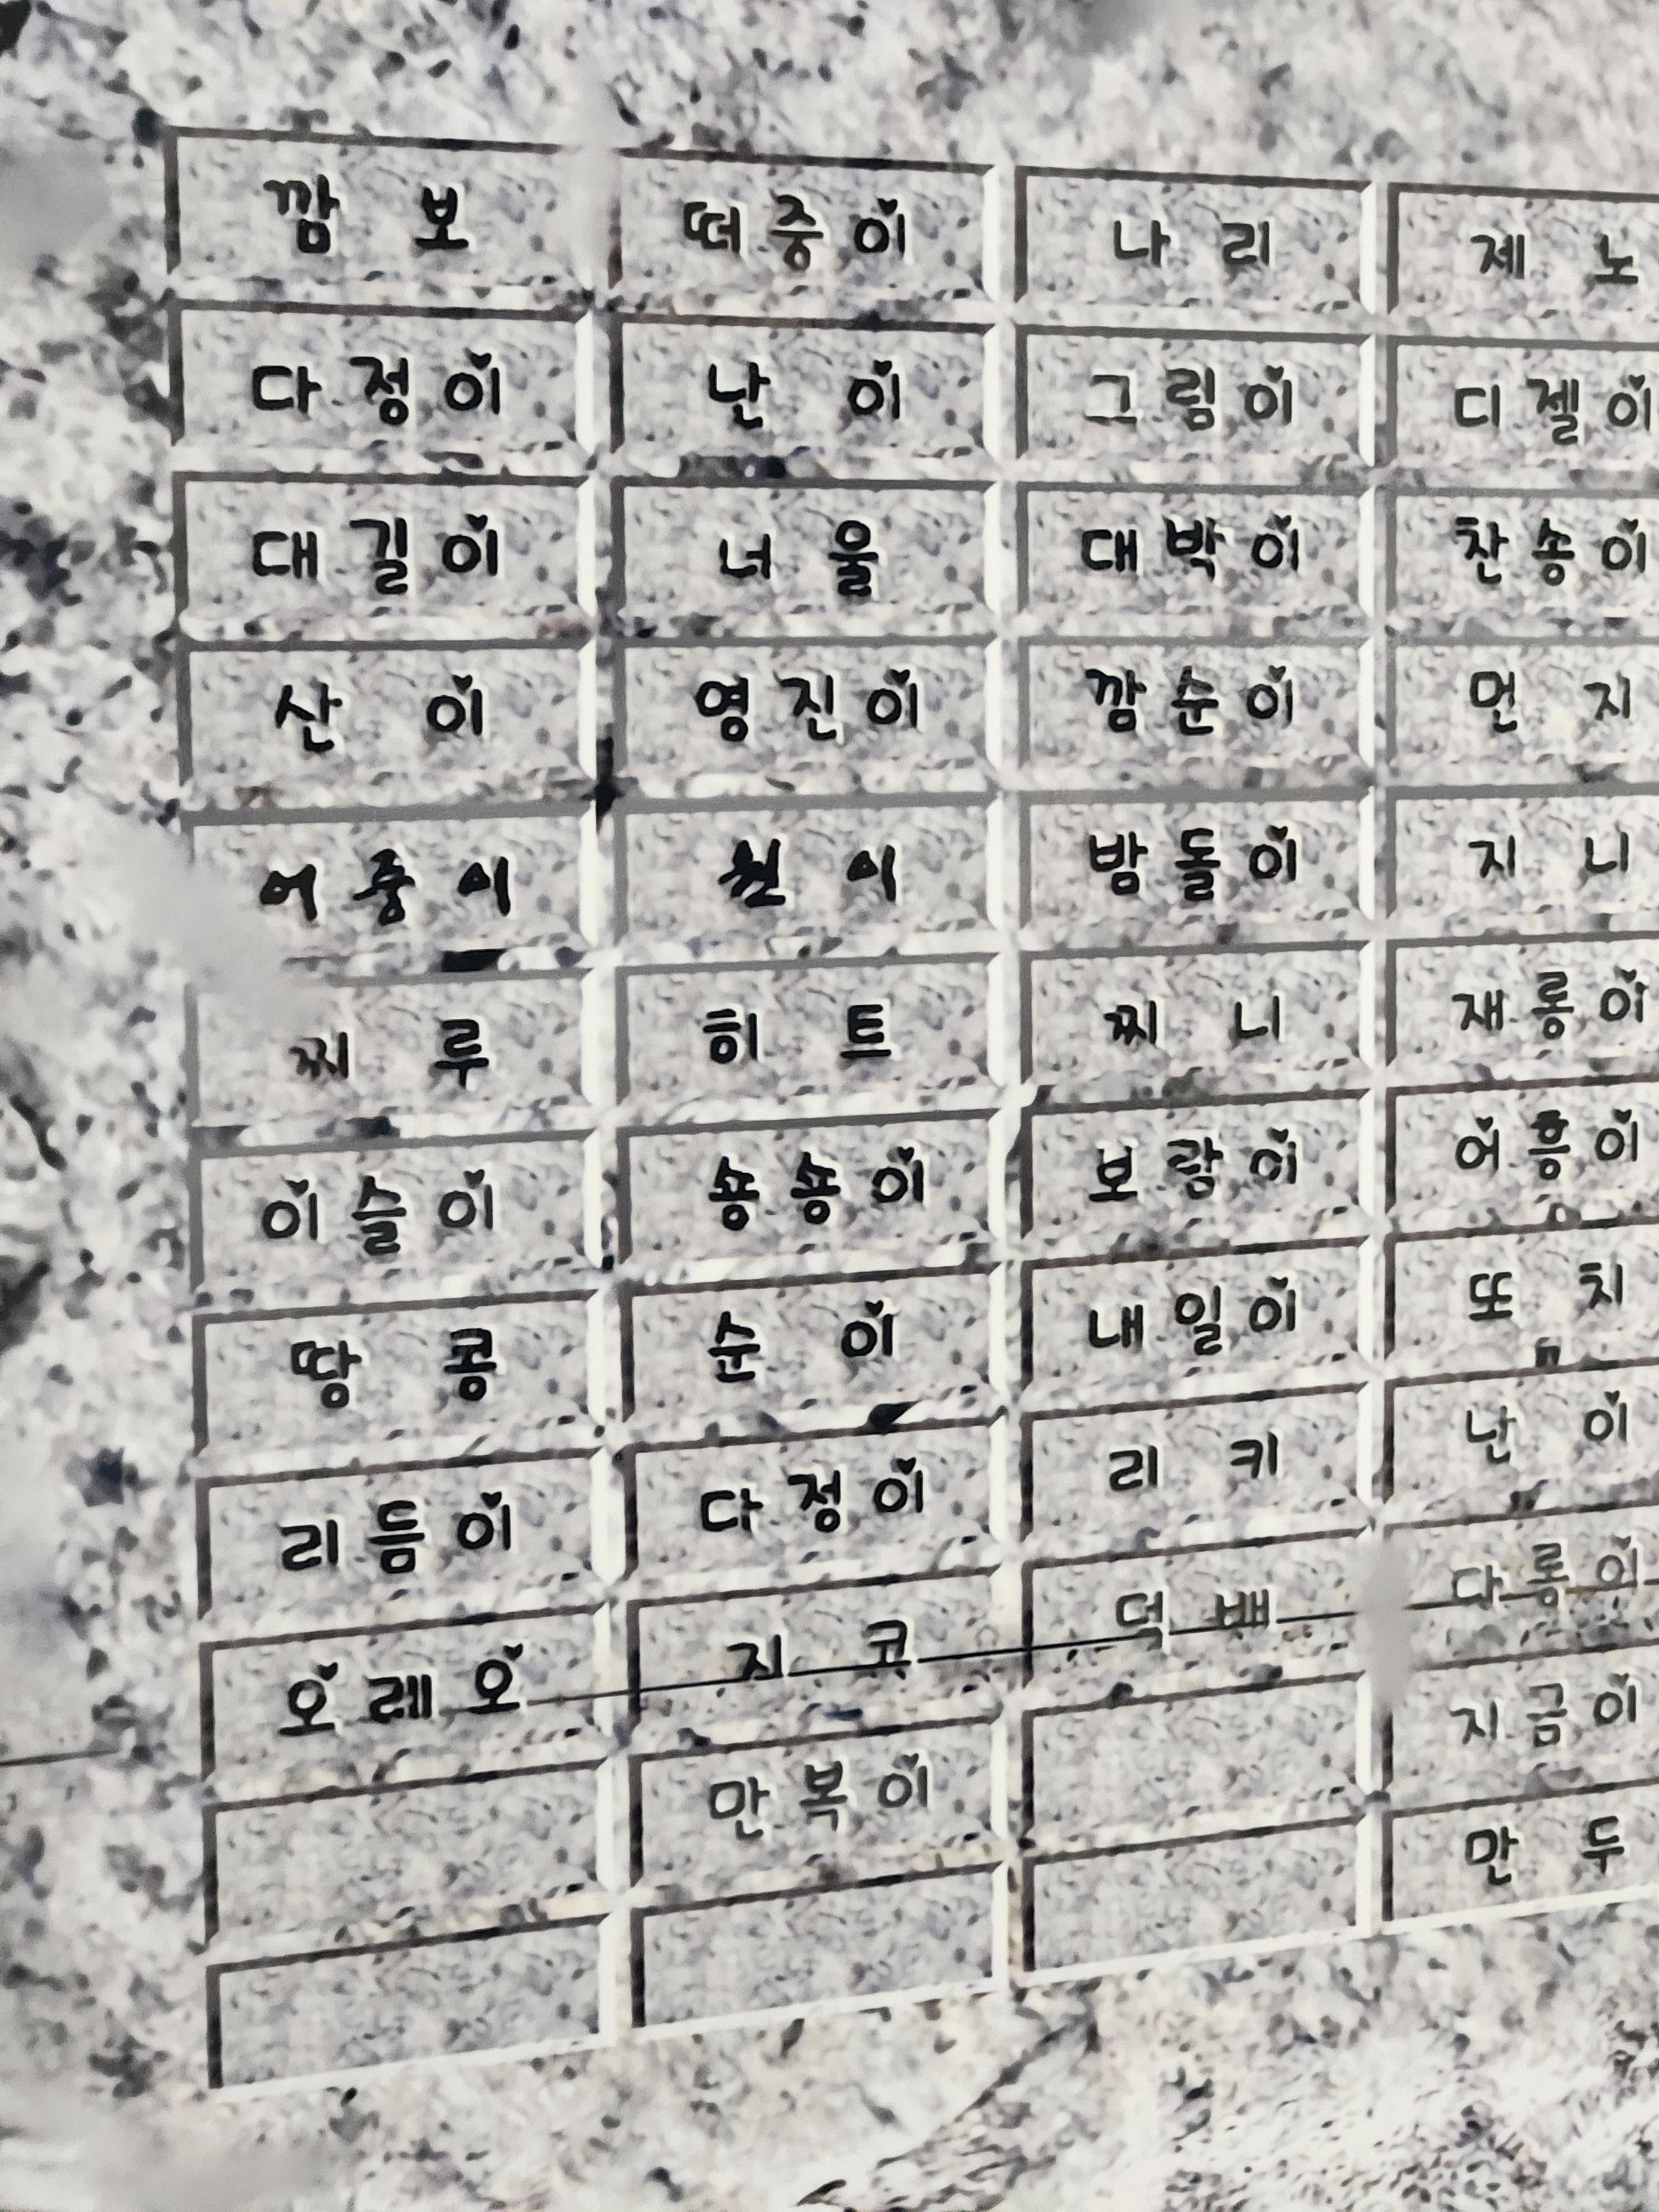 깜보 떠중이 나리 제노
다정이 난이 그림이 디젤이
대길이 너울 대박이 찬송이
산이 영진이 깜순이 먼지
어중이 이 밤돌이 지니
찌루 히트 찌니 재롱이
이슬이 송송이 보람이 어흥이
땅콩 순이 내일이 또치
리듬이 다정이 리키 난이
오레오 지코 덕배 다롱이
만복이 지금이
만두